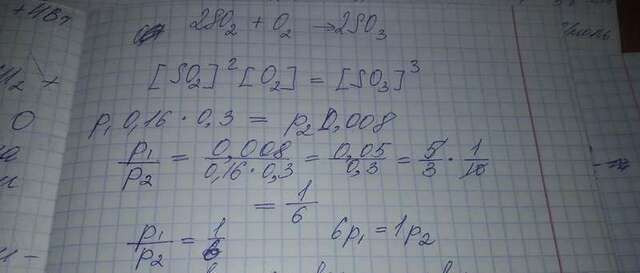 + HBr
2SO₂ + O₂ → 2SO₃
[SO₂]² [O₂] = [SO₃]³
p₁ 0,16 · 0,3 = p₂ 0,008
O
p₁/p₂ = 0,008/0,16 · 0,3 = 0,05/0,3 = 5/3 · 1/10
= 1/6
p₁/p₂ = 1/6 6p₁ = 1p₂